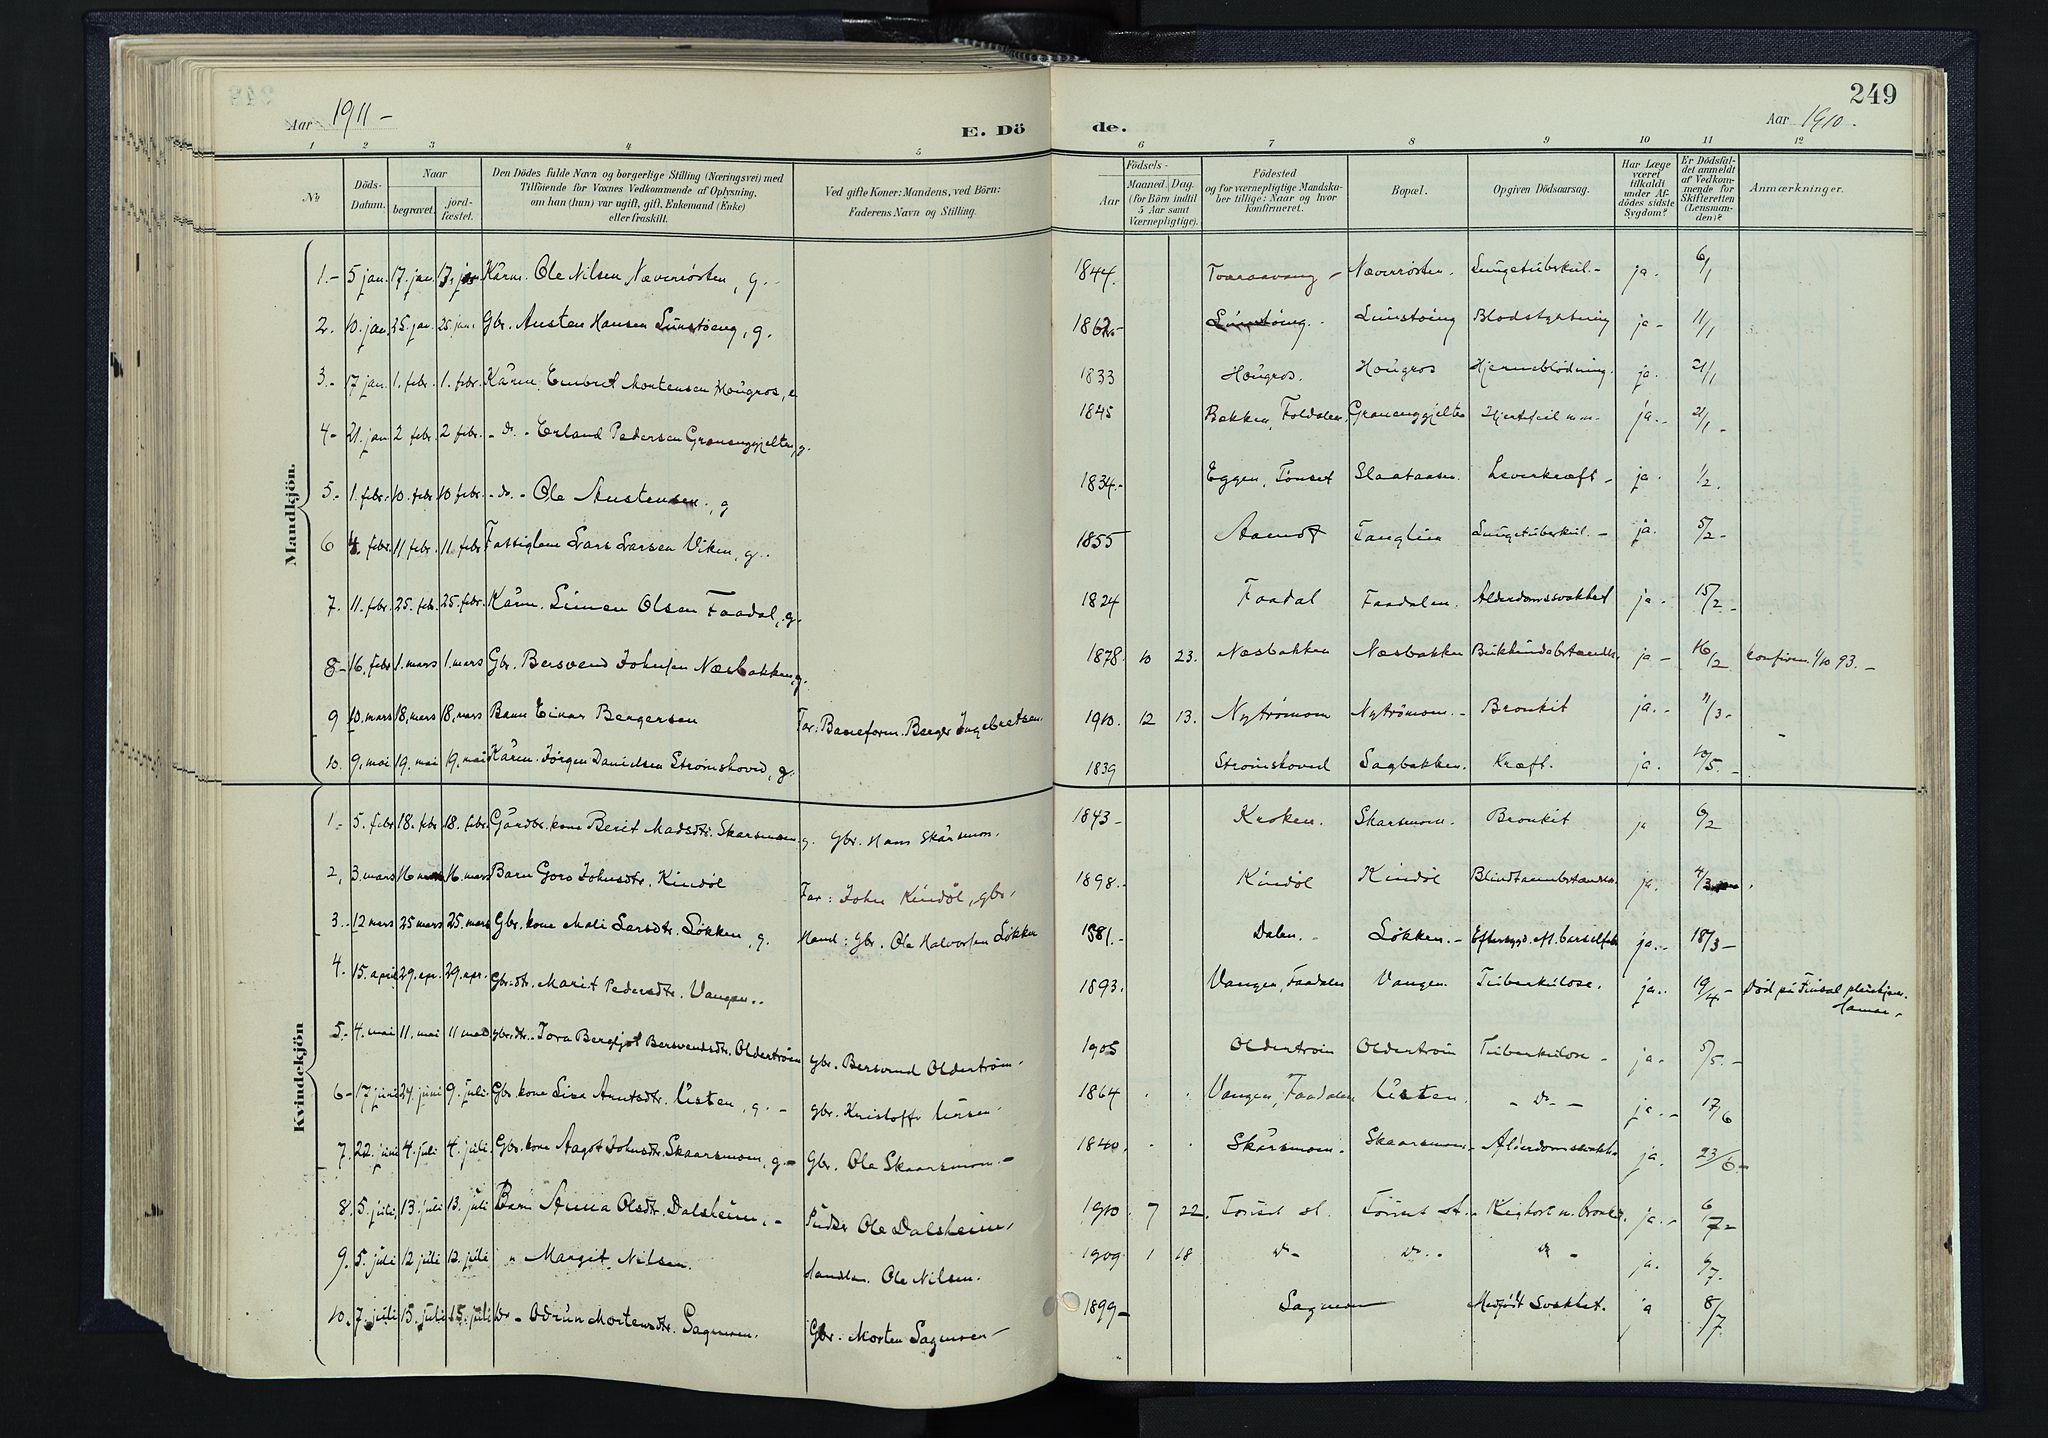 249
Aar 1911-
E. Dö de.
Aar 1910.
1 2 3 4 5 6 7 8 9 10 11 12
No
Döds-Datum.
Naar
begravet.
jord-fæstet.
Den Dödes fulde Navn og borgerlige Stilling (Næringsvei) med
Tilföiende for Voxnes Vedkommende af Oplysning,
om han (hun) var ugift, gift, Enkemand (Enke)
eller fraskilt.
Ved gifte Koner: Mandens, ved Börn:
Faderens Navn og Stilling.
Födsels-
Aar
Maaned. Dag.
(for Börn indtil
5 Aar samt
Værnepligtige).
Födested
og for værnepligtige Mandska-
ber tillige: Naar og hvor
konfirmeret.
Bopæl.
Opgiven Dödsaarsag.
Har Læge
været
tilkaldt
under Af-
dödes sidste
Sygdom?
Er Dödsfal-
det anmeldt
af Vedkom-
mende for
Skifteretten
(Lensman-
den)?
Anmærkninger.
Mandkjön.
1.- 5 jan. 17. jan. 17. jan Kårm. Ole Nilsen Næverrösten, g. 1844. Næverrösten. Lungetubrkul.- ja. 6/1
2. 10. jan. 25. jan. 25. jan. Gbr. Austen Hansen Lunstöeng, g. 1862.- Lunstöing. Lunstöing Blodstyrtning ja- 11/1
3.- 17 jan. 1. febr. 1. febr. Kårm. Embret Mortensen Hougros, e 1833 Hougros. Hougros Hjerneblödning. ja. 21/1
4- 21. jan. 2 febr. 2 febr. - do. - Erland Pedersen g. 1845 Bakken, Foldalen, Hjertfeil m.m. ja.- 21/1-
5.- 1. febr. 10. febr. 10 febr. - do. - Ole Austensen, g 1834.- Eggen, Tönset Leverkræft - ja. 1/2.
6 4. febr. 11 febr. 11. febr. Fattiglem Lars Larsen Viken, g. 1855 Lungetuberkul. - ja. 5/2-
7. 11. febr. 25. feb. 25. febr. Kårm. Simen Olsen Faadal, g. 1824 Faadal Faadalen. Alderdomssvakhed ja. 15/2-
8- 16. febr. 1. mars 1. mars Gbr. Bersvend Johnsen Næsbakken, g. 1878. 10 23. Næsbakken Næsbakken ja- 16/2 Konfirm. 1/10 93.-
9 10. mars 18. mars 18. mars Barn Einar Bergersen Far: Baneform. Berger Ingebretsen. 1910. 12 13. Nyströmoen Nyströmoen.- Bronkit ja.- 11/3-
10. 9. mai 19. mai 19. mai Kårm. Jörgen Danielsen Strömshoved, g. 1839 Strömshoved Sagbakken. Kræft. ja. 10/5.-
Kvindekjön
1.- 5. febr 18. febr 18. febr. Gårdbr. kone Berit Madsdtr. Skarsmoen g. Gbr. Hans Skårsmon. 1843- Kroken. Skarsmoen. Bronkit ja 6/2
2, 3. mars 16 mars 16. mars Barn Goro Johnsdtr. Kindöl Far: John Kindöl, gbr. 1898.- Kindöl Kindöl Blindtarmbetændelse ja.
3.- 12 mars 25 mars 25. mars Gbr. kone Mali Larsdtr. Lökken, g. Mand: gbr. Ole Halvorsen Lökken 1881.- Dalen.- Lökken.- ja.- 18/3-
4. 15. april 29. apr. 29. apr. Gbr.dtr. Marit Pedersdtr. Vangen.. 1893. Vangen, Faadalen Vangen. Tuberkulose. ja.. 19/4- Död på Finsal pleiehjem. Hamar.
5.- 4. mai 11. mai 11 mai gbr.dtr.- Tora Bergljot Bersvendsdtr. Oldertröen gbr. Bersvend Oldertröen. 1905 Oldertröen Oldertröen Tuberkulose- ja.- 5/5.-
6- 17 juni 24. juni 9. juli. Gbr. kone Lisa Arntsdtr. Usten, g.- gbr. Kristoffr Usten. 1864 Vangen, Faadalen Usten. - Do - ja.- 17/6
7. 22. juni 4. juli 4. juli. Gbr. kone Aagot Johnsdtr. Skaarsmoen, g.- Gbr. Ole Skaarsmoen.- 1840. Skårsmoen. Skaarsmoen Alderdomssvakh. ja. 23/6-
8. 5. juli, 13. juli 13. juli Barn Anna Olsdtr. Dalsheim.- Pudser Ole Dalsheim. 1910. 7 22. Tönset st. Tönset St.- Kighost m. bronk. ja.- 6/7-
9. 5. juli 12 juli 12. juli " Margit Nilsen. Handlm. Ole Nilsen. 1909. 1 18 Do- Do.. Do- ja. 6/7.
10. 7. juli 15. juli 15. juli Do- Odrun Mortensdtr. Sagmoen. Gbr. Morten Sagmoen- 1899- Sagmoen Medfödt Svakhet. ja 8/7